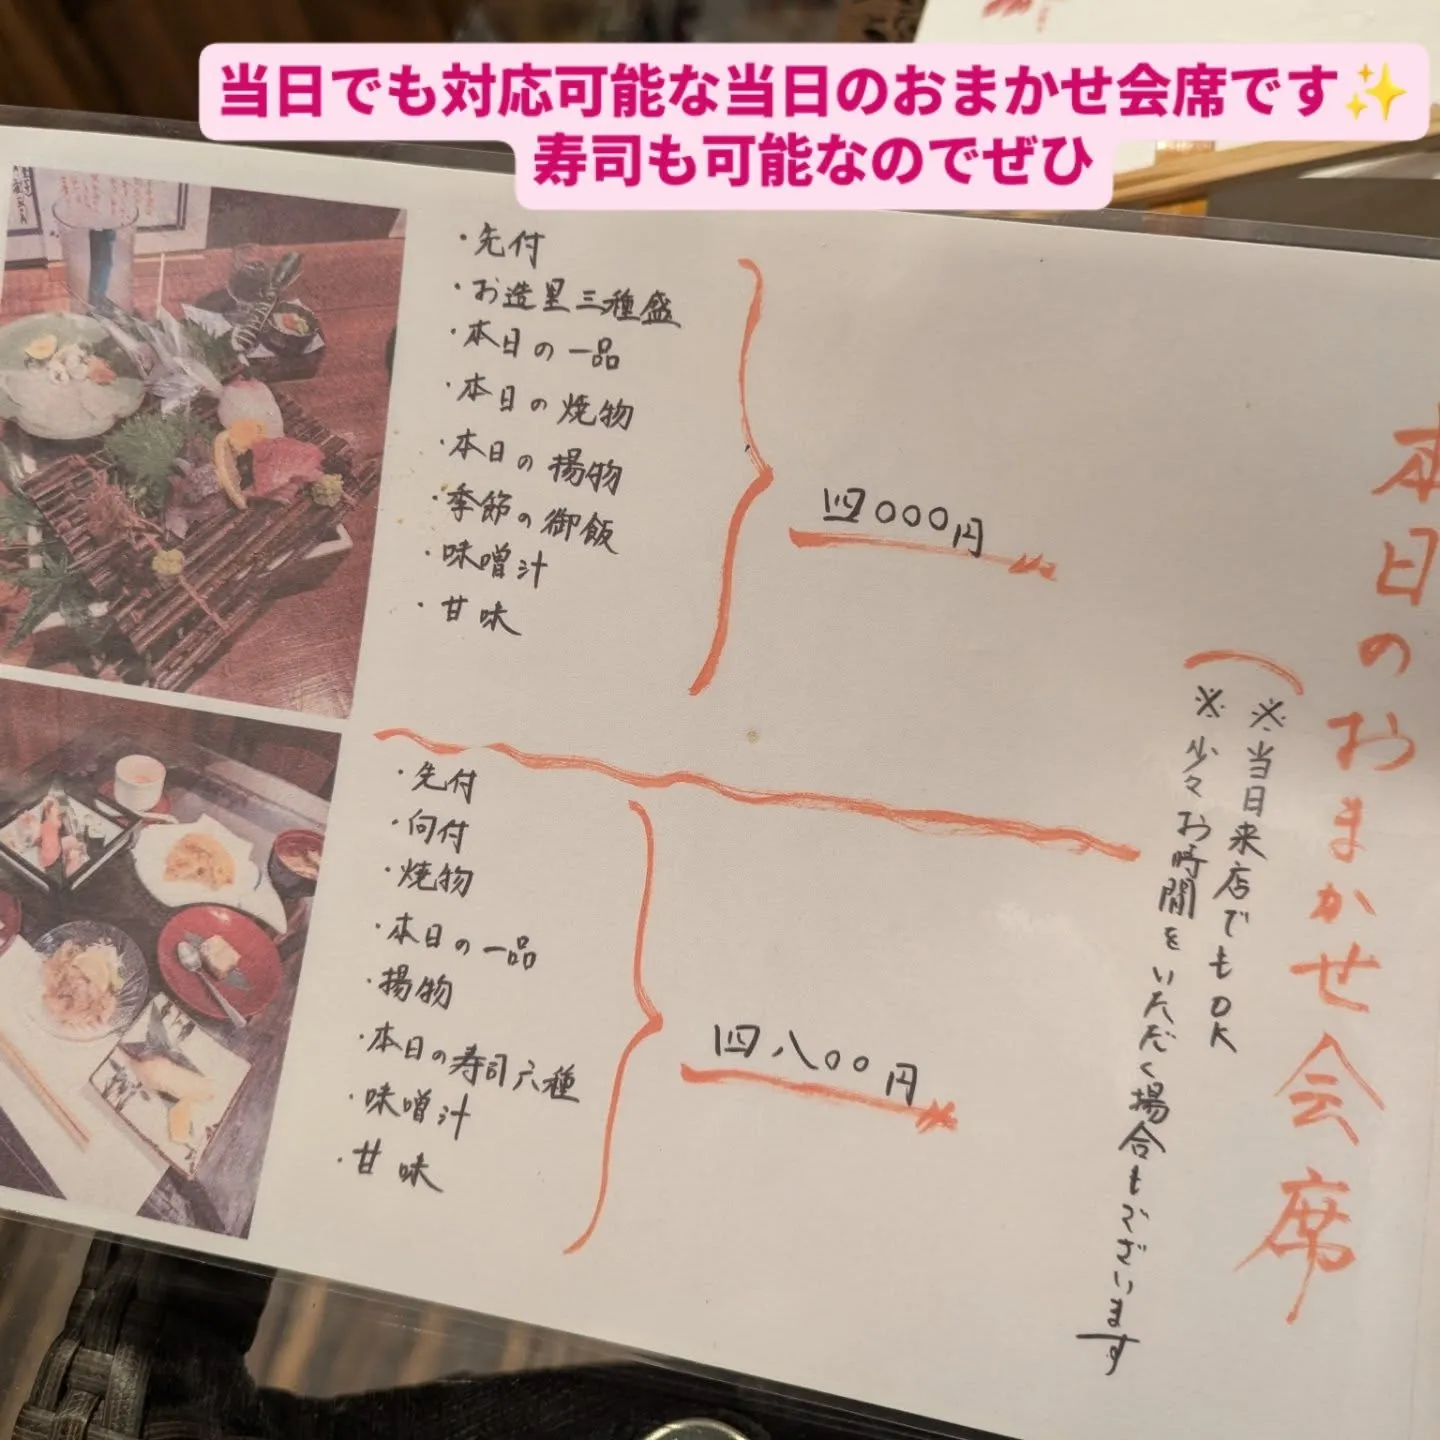 当日でも対応可能な当日のおまかせ会席です✨
寿司も可能なのでぜひ
本日のおまかせ会席
※当日来店でもOK
※少々お時間をいただく場合もございます
・先付
・お造里三種盛
・本日の一品
・本日の焼物
・本日の揚物
・季節の御飯
・味噌汁
・甘味
四〇〇〇円
・先付
・向付
・焼物
・本日の一品
・揚物
・本日の寿司六種
・味噌汁
・甘味
四八〇〇円